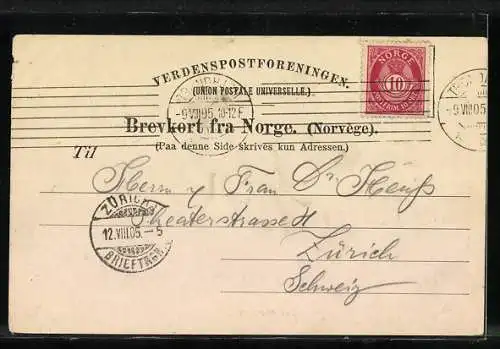 VERDENSPOSTFORENINGEN.
(UNION POSTALE UNIVERSELLE.)
NORGE
10
-9 VIII 05 10-12 F
-9 VIII 05
Brevkort fra Norge. (Norvège).
(Paa denne Side skrives kun Adressen.)
Til
Herrn u Frau Dr
Theaterstrasse
Zürich
Schweiz
ZÜRICH
12.VIII.05.-5